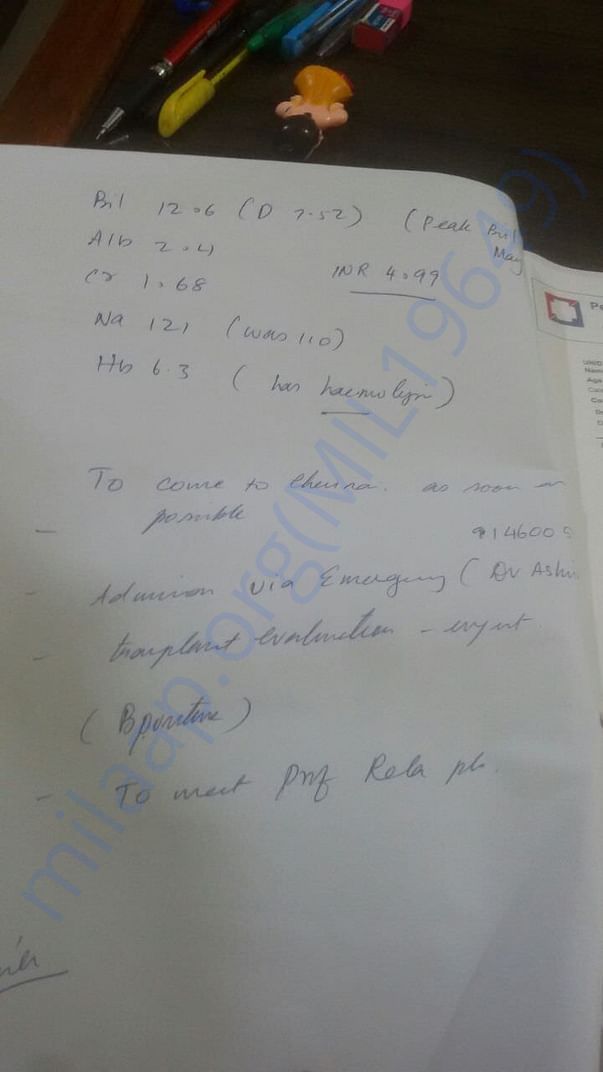 Bil 12.6 (D 7.52) (Peak Bil
May
Alb 2.4
Cr 1.68 INR 4.99
Na 121 (was 110)
Hb 6.3 (has haemolysis)
To come to Chennai as soon as
possible
- 914600
- Admission via Emergency (Dr Ashw
- transplant evaluation - urgent.
(B positive)
- To meet Prof Rela pls.
Pe
UHID
Name
Age
milaap.org(MIL19649)